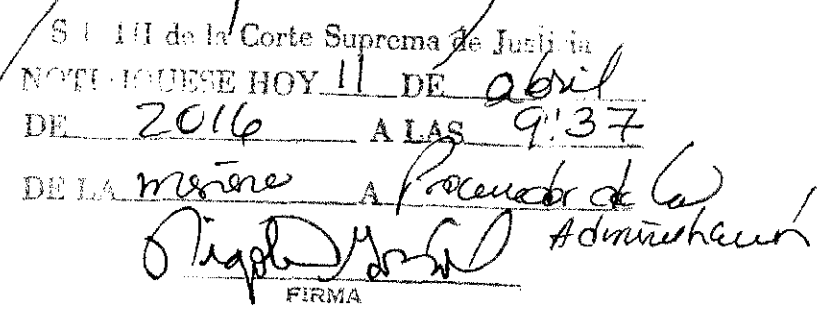 de la Corte Suprema de Justicia
NOTIFIQUESE HOY 11 DE abril
DE 2016 A LAS 9:37
DE LA mañana A Procurador de la
Administración
FIRMA